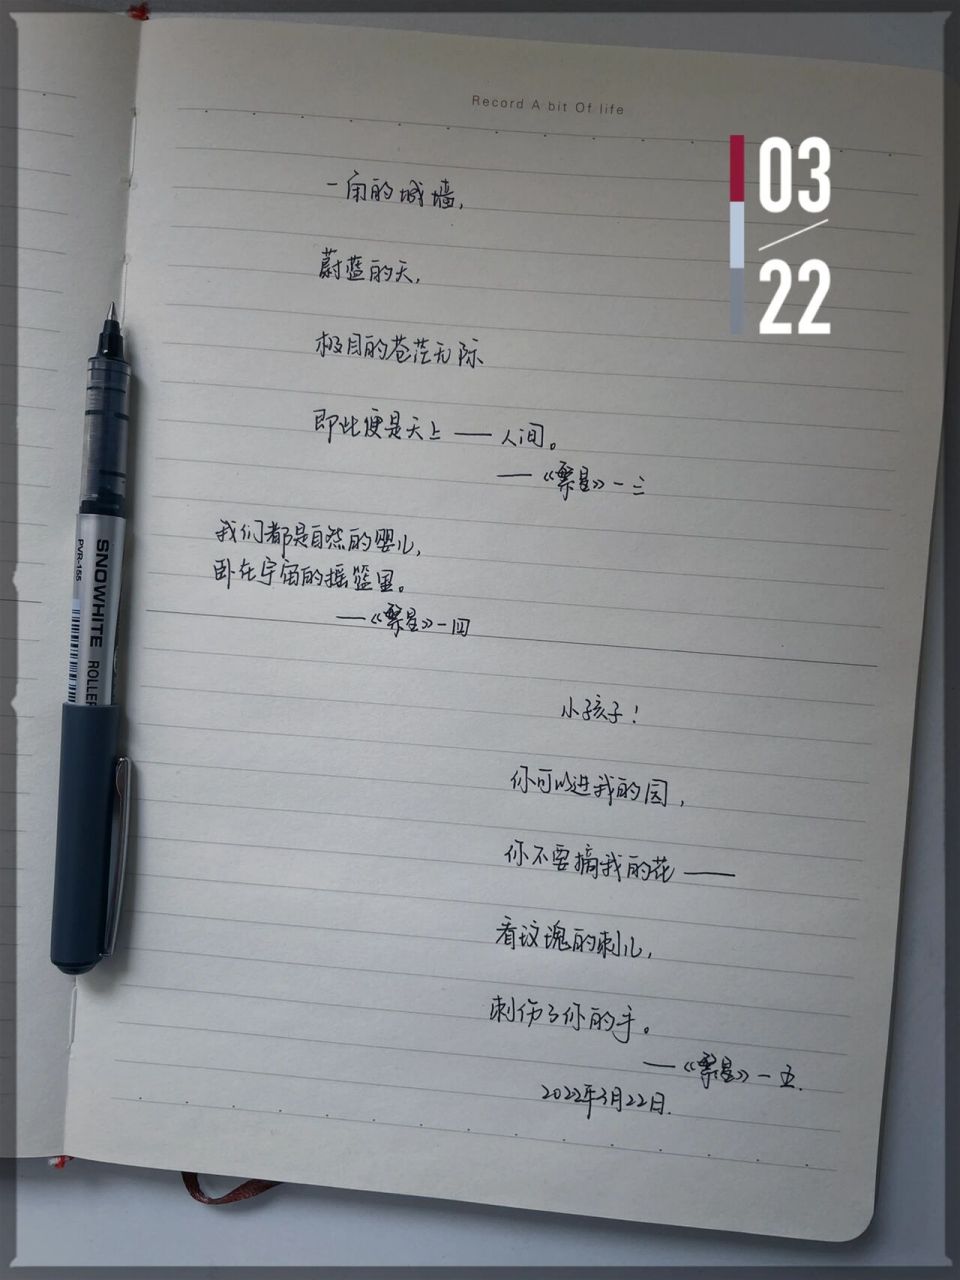 Record A bit Of life
03
22
一角的城墙,
蔚蓝的天,
极目的苍茫无际
即此便是天上——人间。
——《繁星》一三
我们都是自然的婴儿,
卧在宇宙的摇篮里。
——《繁星》一四
小孩子!
你可以进我的园,
你不要摘我的花——
看玫瑰的刺儿,
刺伤了你的手。
——《繁星》一五.
2022年3月22日.
SNOWHITE ROLLER
PVR-155